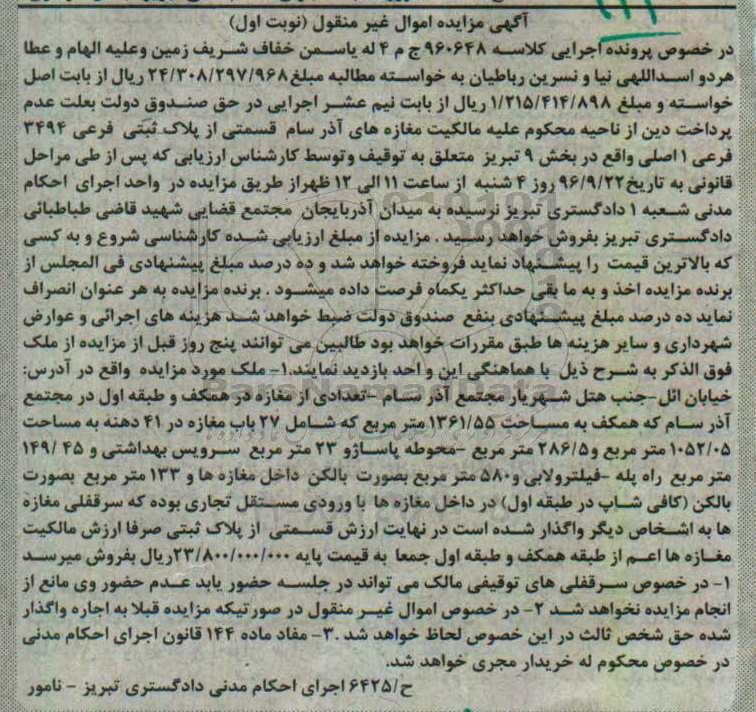 آگهی مزایده اموال غیر منقول (نوبت اول)
در خصوص پرونده اجرایی کلاسه ۹۶۰۶۴۸ ج م ۴ له یاسمن خفاف شریف زمین وعلیه الهام و عطا
هردو اسداللهی نیا و نسرین رباطیان به خواسته مطالبه مبلغ ۲۴/۳۰۸/۲۹۷/۹۶۸ ریال از بابت اصل
خواسته و مبلغ ۱/۲۱۵/۴۱۴/۸۹۸ ریال از بابت نیم عشر اجرایی در حق صندوق دولت بعلت عدم
پرداخت دین از ناحیه محکوم علیه مالکیت مغازه های آذر سام قسمتی از پلاک ثبتی فرعی ۳۴۹۴
فرعی ۱ اصلی واقع در بخش ۹ تبریز متعلق به توقیف وتوسط کارشناس ارزیابی که پس از طی مراحل
قانونی به تاریخ ۹۶/۹/۲۲ روز ۴ شنبه از ساعت ۱۱ الی ۱۲ ظهراز طریق مزایده در واحد اجرای احکام
مدنی شعبه ۱ دادگستری تبریز نرسیده به میدان آذربایجان مجتمع قضایی شهید قاضی طباطبائی
دادگستری تبریز بفروش خواهد رسید . مزایده از مبلغ ارزیابی شده کارشناسی شروع و به کسی
که بالاترین قیمت را پیشنهاد نماید فروخته خواهد شد و ده درصد مبلغ پیشنهادی فی المجلس از
برنده مزایده اخذ و به ما بقی حداکثر یکماه فرصت داده میشود . برنده مزایده به هر عنوان انصراف
نماید ده درصد مبلغ پیشنهادی بنفع صندوق دولت ضبط خواهد شد هزینه های اجرائی و عوارض
شهرداری و سایر هزینه ها طبق مقررات خواهد بود طالبین می توانند پنج روز قبل از مزایده از ملک
فوق الذکر به شرح ذیل با هماهنگی این و احد بازدید نمایند.۱- ملک مورد مزایده واقع در آدرس:
خیابان ائل-جنب هتل شهریار مجتمع آذر سام -تعدادی از مغازه در همکف و طبقه اول در مجتمع
آذر سام که همکف به مساحت ۱۳۶۱/۵۵ متر مربع که شامل ۲۷ باب مغازه در ۴۱ دهنه به مساحت
۱۰۵۲/۰۵ متر مربع و۲۸۶/۵ متر مربع -محوطه پاساژو ۲۳ متر مربع سرویس بهداشتی و ۴۵ /۱۴۹
متر مربع راه پله -فیلترولابی و۵۸۰ متر مربع بصورت بالکن داخل مغازه ها و ۱۳۳ متر مربع بصورت
بالکن (کافی شاپ در طبقه اول) در داخل مغازه ها با ورودی مستقل تجاری بوده که سرقفلی مغازه
ها به اشخاص دیگر واگذار شده است در نهایت ارزش قسمتی از پلاک ثبتی صرفا ارزش مالکیت
مغازه ها اعم از طبقه همکف و طبقه اول جمعا به قیمت پایه ۲۳/۸۰۰/۰۰۰/۰۰۰ریال بفروش میرسد
۱- در خصوص سرقفلی های توقیفی مالک می تواند در جلسه حضور یابد عدم حضور وی مانع از
انجام مزایده نخواهد شد ۲- در خصوص اموال غیر منقول در صورتیکه مزایده قبلا به اجاره واگذار
شده حق شخص ثالث در این خصوص لحاظ خواهد شد .۳- مفاد ماده ۱۴۴ قانون اجرای احکام مدنی
در خصوص محکوم له خریدار مجری خواهد شد.
ح/۶۴۲۵ اجرای احکام مدنی دادگستری تبریز - نامور
ParsNamadData